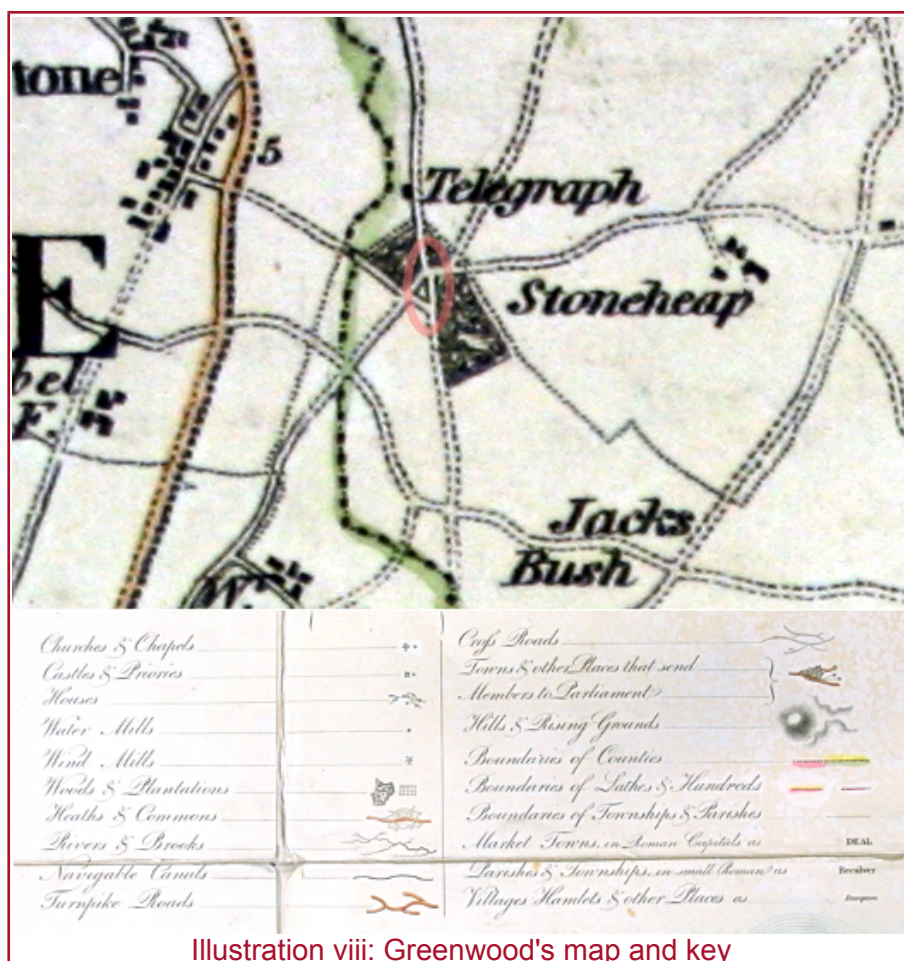 tone
5
Telegraph
E
Stoneheap
bel
F.
Jacks
Bush
W
Churches & Chapels
Castles & Priories
Houses
Water Mills
Wind Mills
Woods & Plantations
Heaths & Commons
Rivers & Brooks
Navigable Canals
Turnpike Roads
Croſs Roads
Towns & other Places that send
Members to Parliament
Hills & Rising Grounds
Boundaries of Counties
Boundaries of Lathes & Hundreds
Boundaries of Townships & Parishes
Market Towns, in Roman Capitals as DEAL
Parishes & Townships, in small Roman as Reculver
Villages Hamlets & other Places as
Illustration viii: Greenwood's map and key